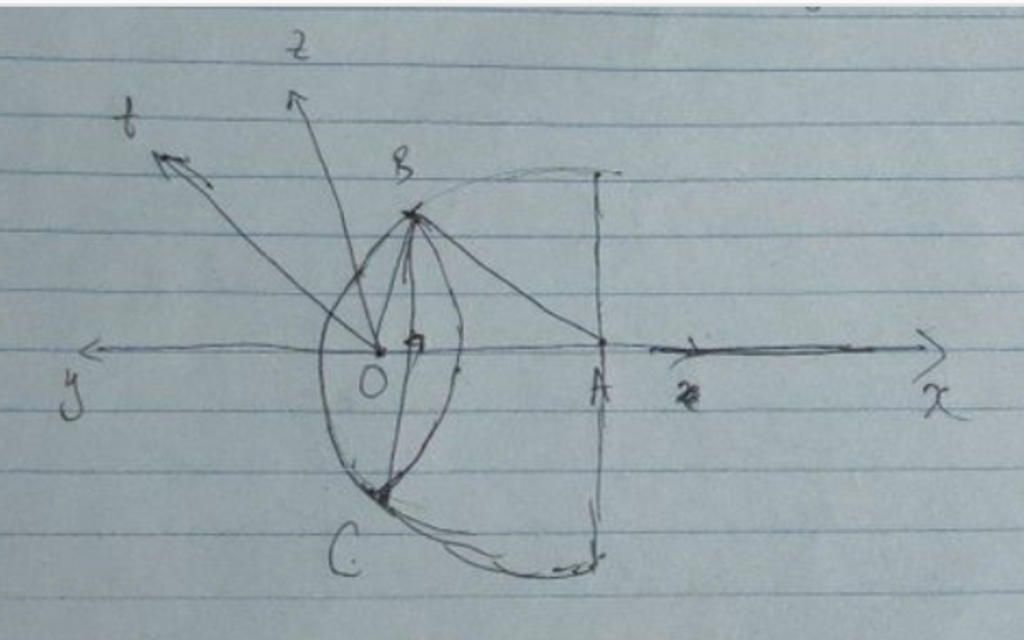 z
t
B
y
O
A
x
C